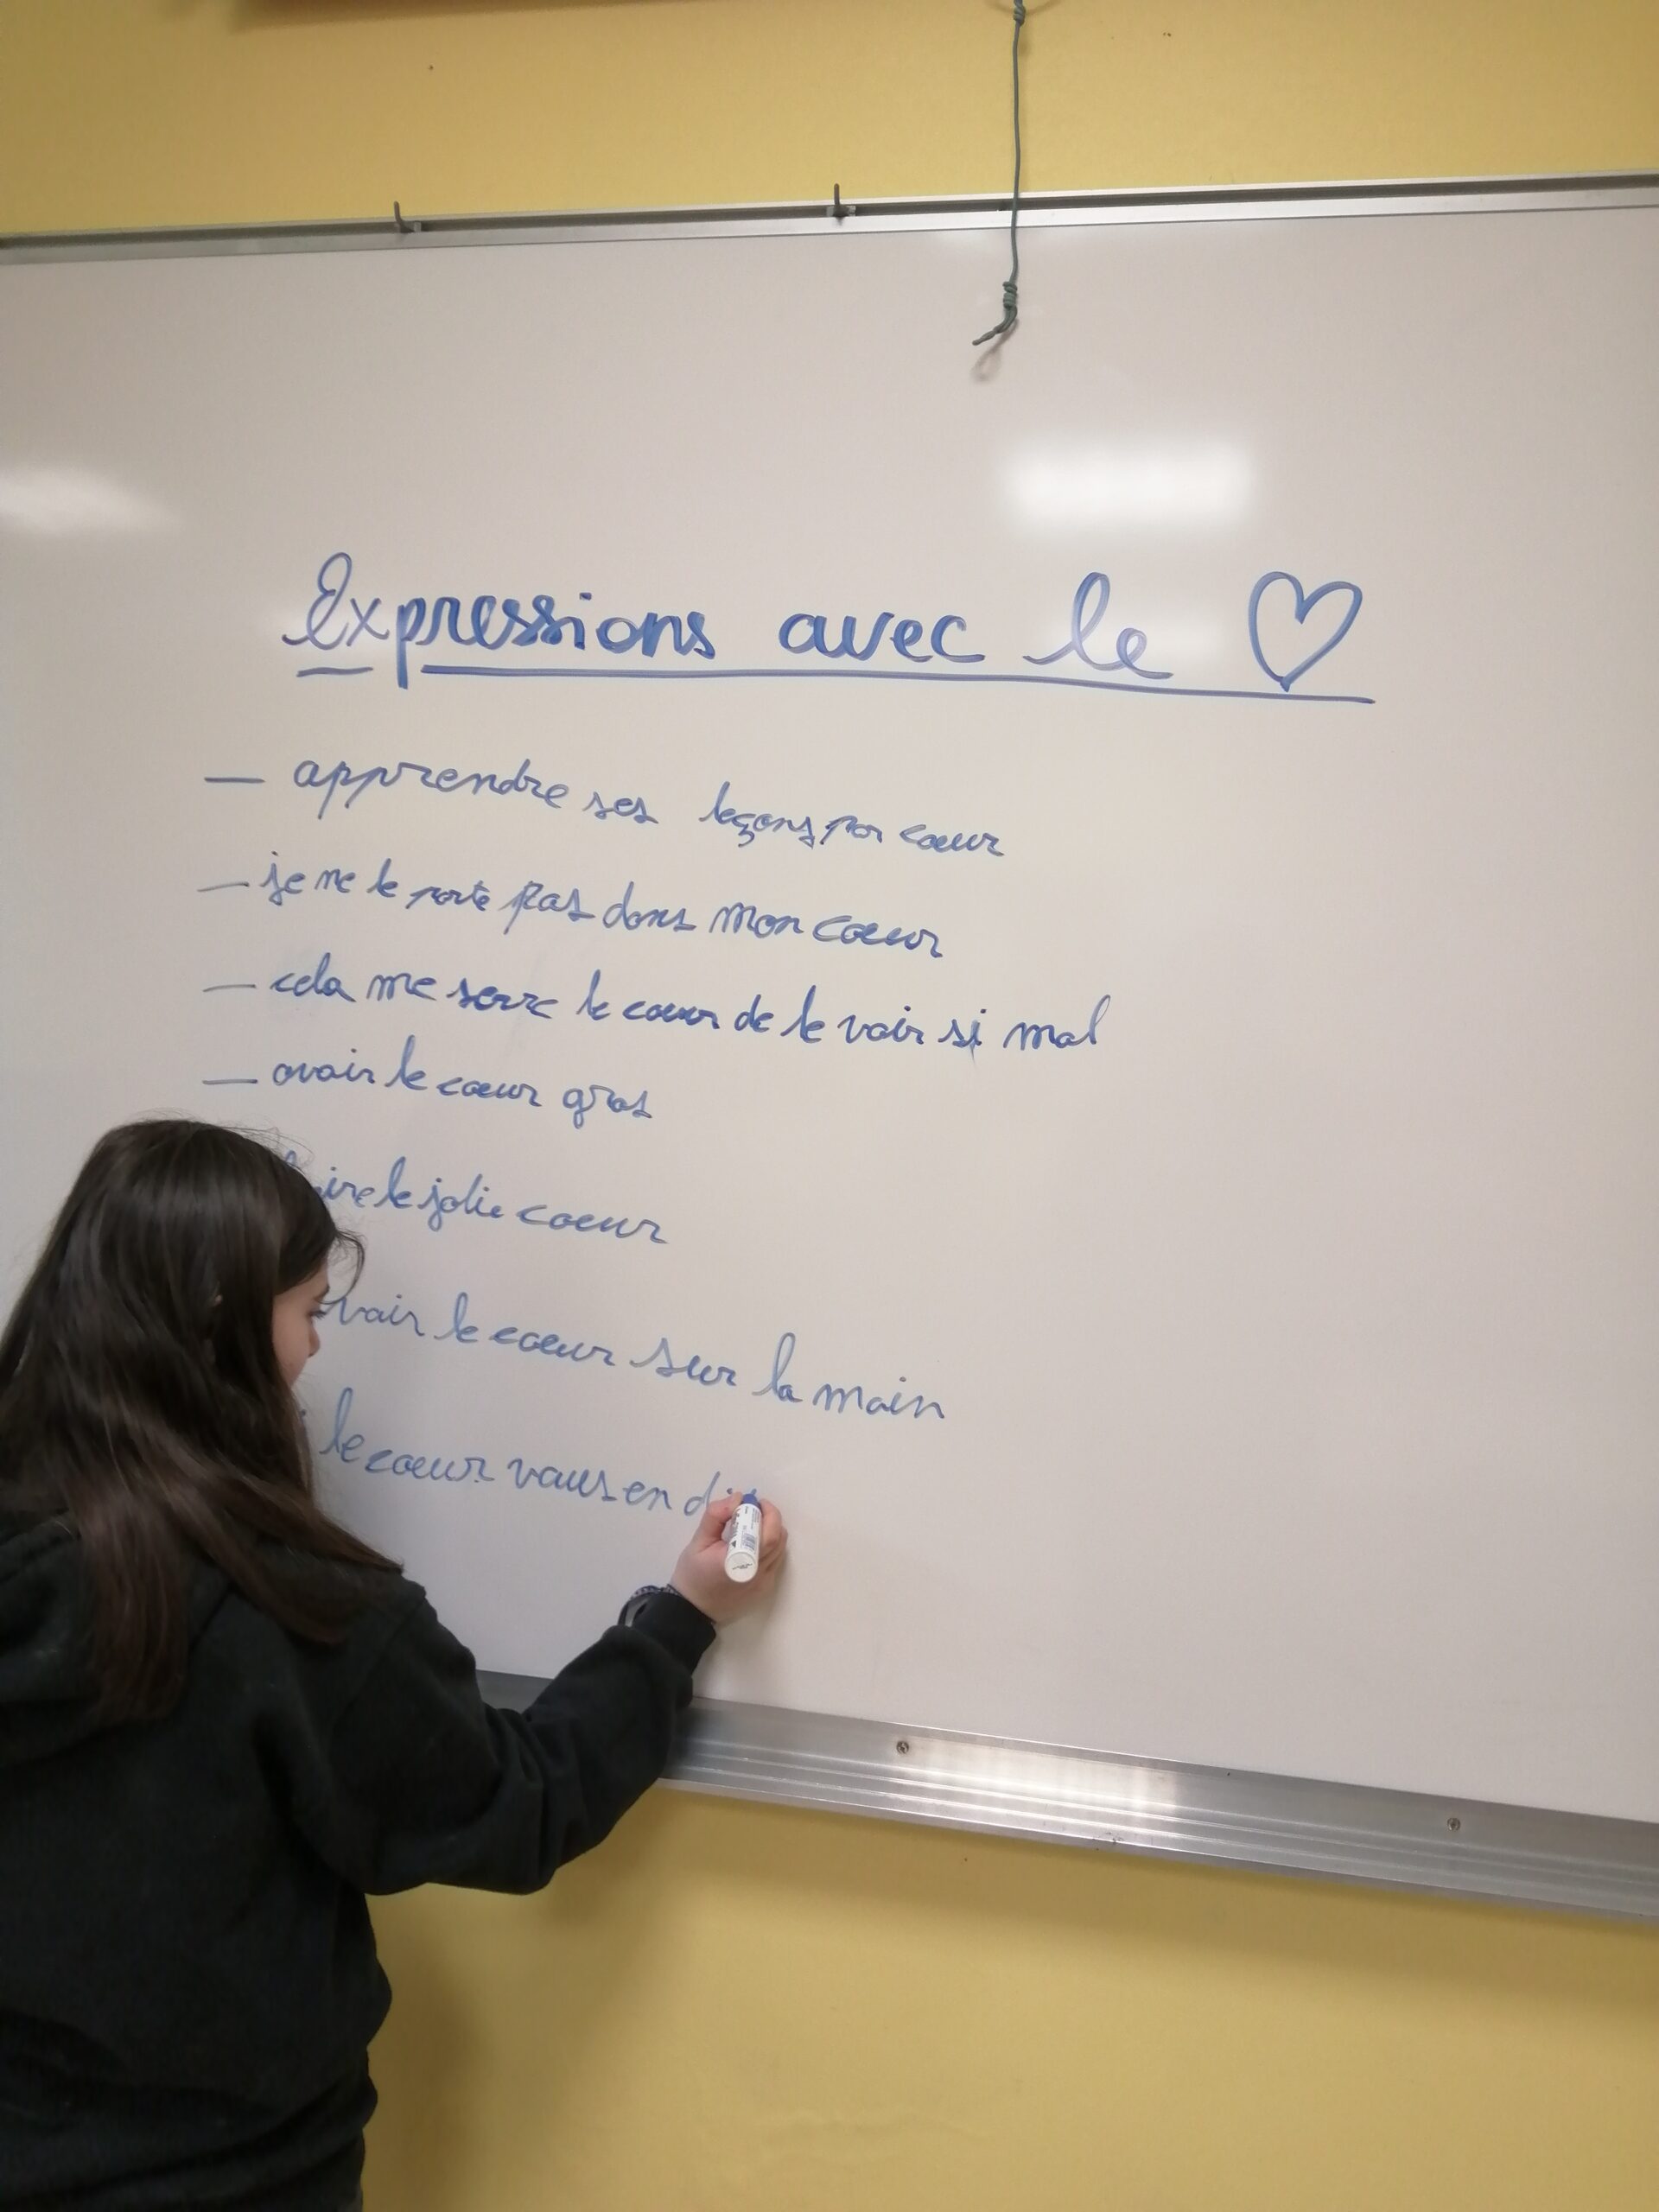 Expressions avec le ♡
— apprendre ses leçons par cœur
— je ne le porte pas dans mon cœur
— cela me serre le cœur de le voir si mal
— avoir le cœur gros
le jolie coeur
le coeur sur la main
le cœur vous en